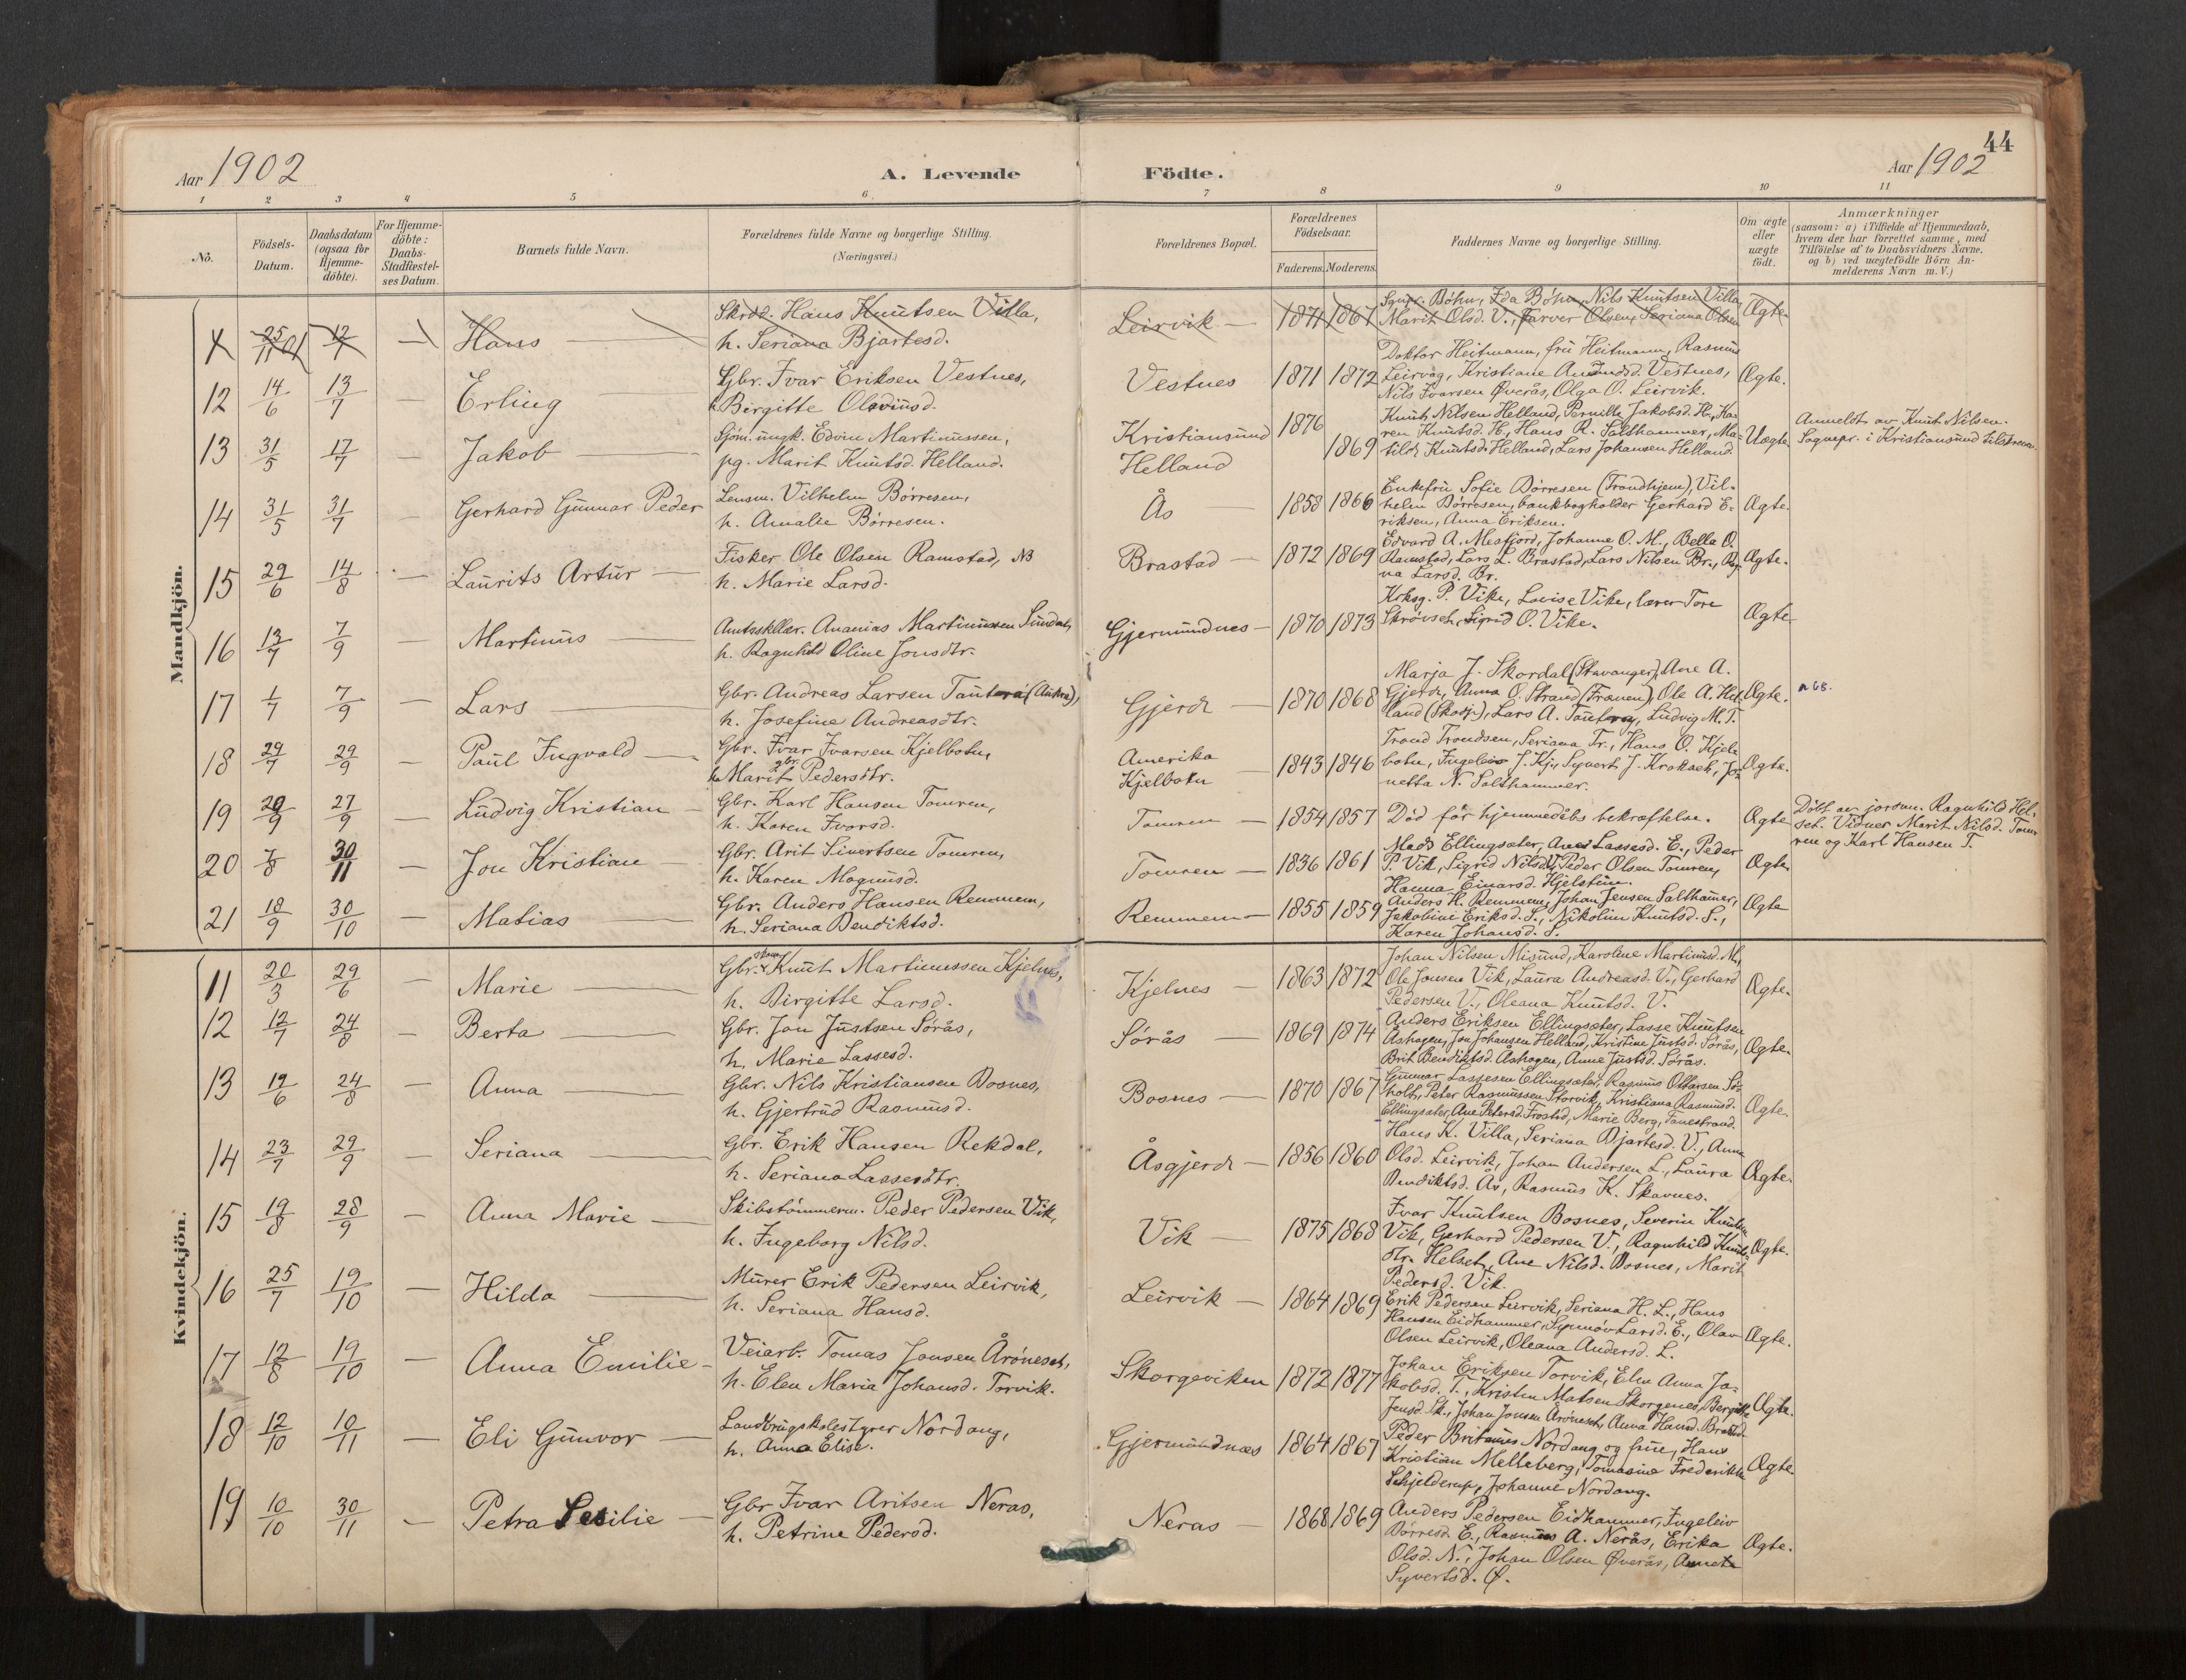 44
Aar 1902
A. Levende Födte.
Aar 1902
1 2 3 4 5 6 7 8 9 10 11
No.
Födsels-Datum.
Daabsdatum (ogsaa for Hjemme-döbte).
For Hjemme-döbte: Daabs-Stadfæstel-ses Datum.
Barnets fulde Navn.
Forældrenes fulde Navne og borgerlige Stilling.
(Næringsvei.)
Forældrenes Bopæl.
Forældrenes Födselsaar.
Faderens. Moderens.
Faddernes Navne og borgerlige Stilling.
Om ægte eller uægte födt.
Anmærkninger
(saasom: a) i Tilfælde af Hjemmedaab,
hvem der har forrettet samme, med
Tilföielse af to Daabsvidners Navne.
og b) ved uægtefödte Börn An-
melderens Navn m. V.)
Mandkjön.
Hans
Skrdd. Hans Knutsen Villa,
h. Seriana Bjartesd.
Leirvik
1871 1861
Böhn, Ida Böhn, Nils Knutsen Villa,
Marit Olsd. V., Farver Olsen, Seriana Olsen
Ægte
12 14/6 13/7 — Erling
Gbr. Ivar Eriksen Vestnes,
h. Birgitte Olavinsd.
Vestnes 1871 1872
Doktor Heitmann, fru Heitmann, Rasmus
Leirvåg, Kristiane Vestnes,
Nils Ivarsen Øverås, Olga O. Leirvik.
Ægte.
13 31/5 17/7 Jakob
Sjöm. ungk. Edvin Martinussen,
pg. Marit Knutsd. Helland.
Kristiansund 1876
Helland 1869
Knut Nilsen Helland, Pernille Jakobsd. H., Ka-
ren Knutsd. H., Hans R. Salthammer, Ma-
tilde Knutsd. Helland, Lars Johansen Helland
Uægte
Anmeldt av Knut Nilsen.
Sognepr. i Kristiansund
14 31/5 31/7 — Gerhard Gunnar Peder
Lensm. Vilhelm Börresen,
h. Amalie Börresen.
Ås 1858 1866
Enkefru Sofie Börresen (Trondhjem), Vil-
helm Börresen, bankbogholder Gerhard E-
riksen, Anna Eriksen.
Ægte.
15 29/6 14/8 — Laurits Artur
Fisker Ole Olsen Ramstad, NB
h. Marie Larsd.
Brastad 1872 1869
Edvard A. Mesfjord, Johanne O. M., Bella O.
Ramstad, Lars L. Brastad, Lars Nilsen Br., Rag-
na Larsd. Br.
Ægte.
16 13/7 7/9 — Martinus
Ananias Martinussen Sundal,
h. Ragnhild Oline Jonsdtr.
Gjermundnes 1870 1873
Kirksg. P. Vike, Lovise Vike, lærer Tore
Skrövseth, Sigrid O. Vike.
Ægte
17 1/7 7/9 — Lars
Gbr. Andreas Larsen Tautra (Aukra),
h. Josefine Andreasdtr.
Gjerde 1870 1868
Marja J. Skordal (Stavanger), Ane A.
Gjerde, Anna O. Strand (Frænen), Ole A. Hel-
land (Skodje), Lars A. Tautra, Ludvig M. T.
Ægte.
18 29/7 29/9 — Paul Ingvald
Gbr. Ivar Ivarsen Kjelbotn,
h. Marit Pedersdtr.
Amerika
Kjelbotn
1843 1846
Trond Trondsen, Seriana Tr., Hans O. Kjel-
botn, Ingeleiv J. Kj., Syvert J. Jo-
netta N. Salthammer.
Ægte.
19 27/9 — Ludvig Kristian
Gbr. Karl Hansen Tomren,
h. Karen Ivarsd.
Tomren 1854 1857
Död för hjemmedåbs bekræftelse.
Ægte
Döbt av jordm. Ragnhild Hel-
set. Vidner Marit Nilsd. Tom-
ren og Karl Hansen T.
20 7/8 30/11 — Jon Kristian
Gbr. Arit Sivertsen Tomren,
h. Karen Magnusd.
Tomren 1836 1861
Mads Ellingsæter, Ane Lassesd. E., Peder
P. Vik, Sigrid Nilsd., Peder Olsen Tomren,
Hanna Einarsd. Hjelstein.
Ægte
21 18/9 30/10 — Matias
Gbr. Anders Hansen Remmem,
h. Seriana Bendiktsd.
Remmem 1855 1859
Anders H. Remmem, Johan Jensen Salthamer,
Jakobine Eriksd. S., Nikoline Knutsd. S.,
Karen Johansd. S.
Ægte
Kvindekjön.
11 20/3 29/6 — Marie
Gbr. Knut Martinussen Kjelnes,
h. Birgitte Larsd.
Kjelnes 1863 1872
Johan Nilsen Misund, Karoline Martinusd. M.,
Ole Jonsen Vik, Laura Andreasd. V., Gerhard
Pedersen V., Oleana Knutsd. V.
Ægte.
12 12/7 24/8 — Berta
Gbr. Jon Justsen Sörås,
h. Marie Lassesd.
Sörås 1869 1874
Anders Eriksen Ellingsæter, Lasse Knutsen
Åshagen, Jon Johansen Helland, Kristine Justsd. Sörås,
Brit Bendiktsd. Åshagen, Anne Justsd. Sörås.
Ægte.
13 19/6 24/8 — Anna
Gbr. Nils Kristiansen Bosnes,
h. Gjertrud Rasmusd.
Bosnes 1870 1867
Gunnar Lassesen Ellingsæter, Rasmus Ottarsen
Peter Rasmussen Storvik, Kristiana Rasmusd.
Ellingsæter, Ane Petersd. Frostad, Marie Berg, Fanestrand.
Ægte.
14 23/7 29/9 — Seriana
Gbr. Erik Hansen Rekdal,
h. Seriana Lassesdtr.
Åsgjerde 1856 1860
Hans K. Villa, Seriana Bjartesd. V., Anna
Olsd. Leirvik, Johan Andersen L., Laura
Bendiktsd. Ås, Rasmus K. Skavnes.
Ægte.
15 19/8 28/9 — Anna Marie
Skibstömmerm. Peder Pedersen Vik,
h. Ingeborg Nilsd.
Vik 1875 1868
Ivar Knutsen Bosnes, Severin Knutsen
Vik, Gerhard Pedersen V., Ragnhild Knuts-
dtr. Helset, Ane Nilsd. Bosnes, Marit
Pedersd. Vik.
Ægte.
16 25/7 19/10 — Hilda
Murer Erik Pedersen Leirvik,
h. Seriana Hansd.
Leirvik 1864 1869
Erik Pedersen Leirvik, Seriana H. L., Hans
Hansen Eidhammer, Synnöv Larsd. E., Olav
Olsen Leirvik, Oleana Andersd. L.
Ægte.
17 12/8 19/10 — Anna Emilie
Veiarb. Tomas Jonsen Åröneset,
h. Elen Maria Johansd. Torvik.
Skorgeviken 1872 1877
Johan Eriksen Torvik, Elen Anna Ja-
kobsd. T., Kristen Matsen Skorgenes, Bergitte
Jensd. Sk., Johan Jonsen Åröneset, Anna Hansd.
Ægte.
18 12/10 10/11 — Eli Gunvor
Landbrugsskolestyrer Nordang,
h. Anna Elise.
Gjermundnæs 1864 1867
Peder Nordang og frue, Hans
Kristian Melleberg, Tomasine Frederikke
Schjelderup, Johanne Nordang.
Ægte.
19 10/10 30/11 — Petra Sesilie
Gbr Ivar Aritsen Neras,
h. Petrine Pedersd.
Neras 1868 1869
Anders Pedersen Eidhammer, Ingeleiv
Börresd. E., Rasmus A. Nerås, Erika
Olsd. N., Johan Olsen Øverås, Anneta
Syvertsd. Ø.
Ægte.